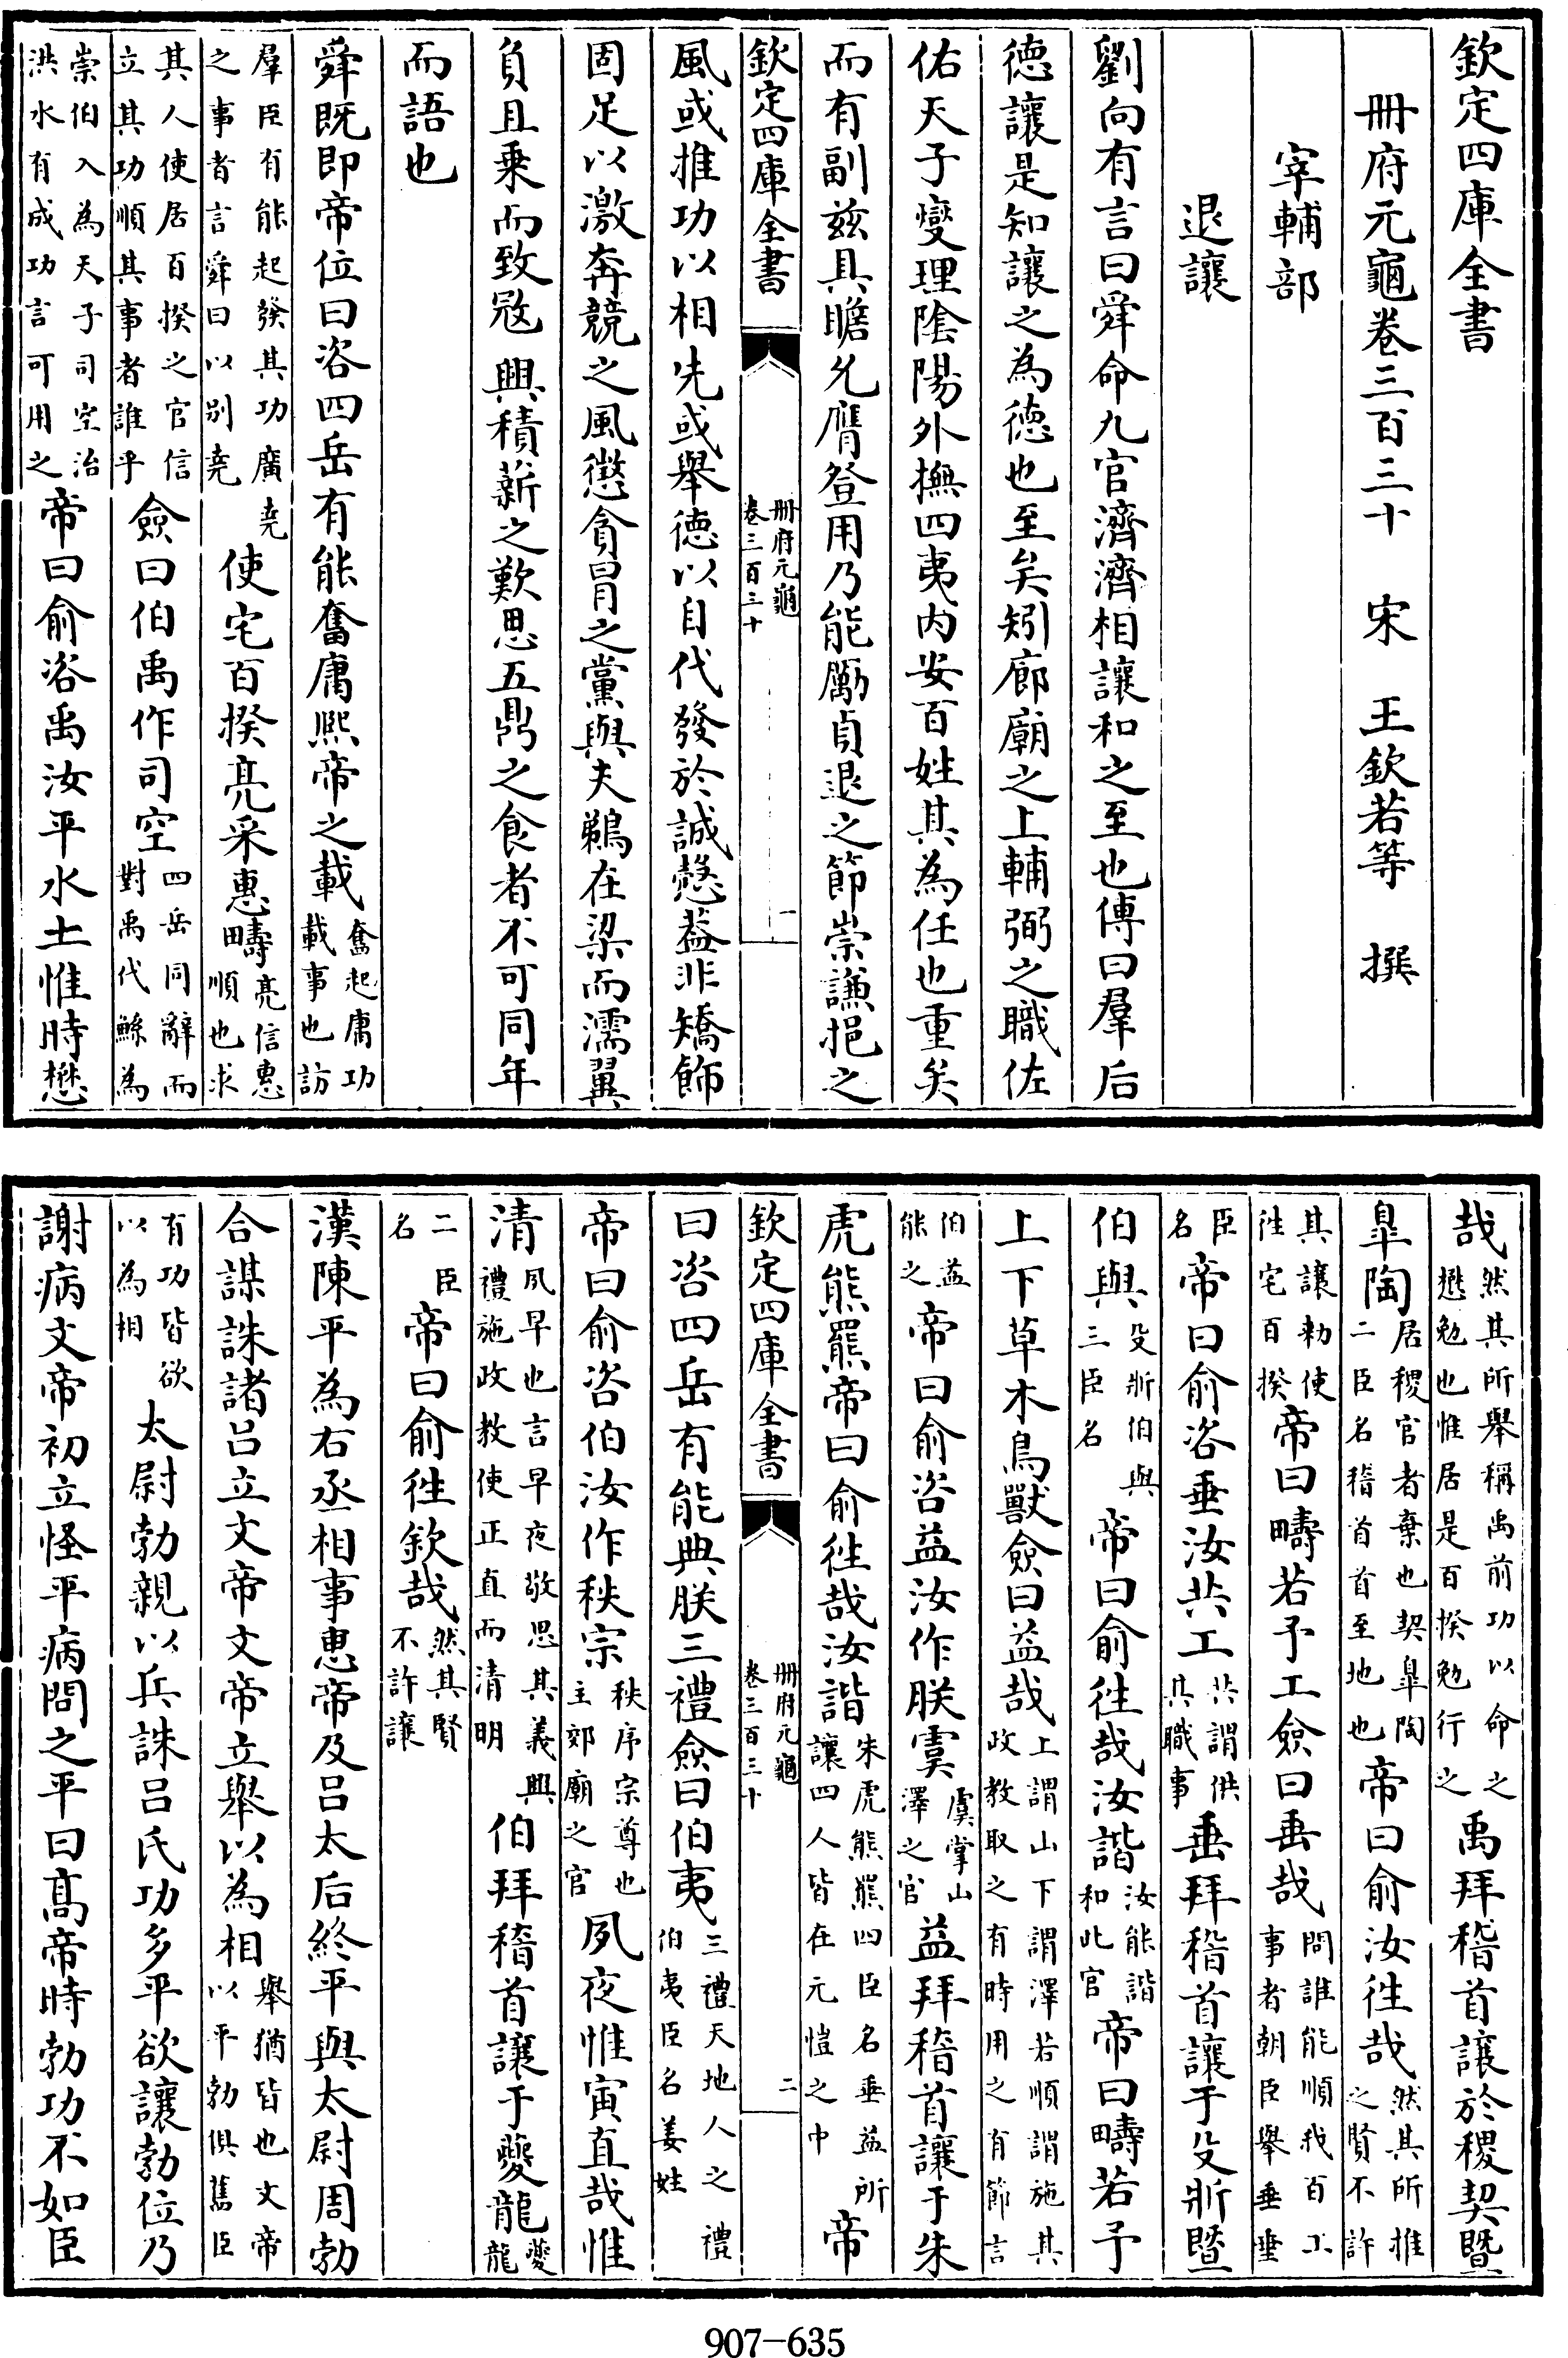 欽定四庫全書
冊府元龜卷三百三十　宋　王欽若等　撰
宰輔部
退讓
劉向有言曰舜命九官濟濟相讓和之至也傳曰羣后
德讓是知讓之為德也至矣矧廊廟之上輔弼之職佐
佑天子燮理陰陽外撫四夷内安百姓其為任也重矣
而有副兹具瞻允膺登用乃能勵貞退之節崇謙挹之
欽定四庫全書
冊府元龜
卷三百三十
一
風或推功以相先或舉德以自代發於誠慤葢非矯飾
固足以激奔競之風懲貪冒之黨與夫鵜在梁而濡翼
負且乗而致冦興積薪之歎思五鼎之食者不可同年
而語也
舜既即帝位曰咨四岳有能奮庸熙帝之載奮起庸功載事也訪
羣臣有能起發其功廣堯之事者言舜曰以别堯使宅百揆亮采惠疇亮信惠順也求
其人使居百揆之官信立其功順其事者誰乎僉曰伯禹作司空四岳同辭而對禹代鯀為
崇伯入為天子司空治洪水有成功言可用之帝曰俞咨禹汝平水土惟時懋
哉然其所舉稱禹前功以命之懋勉也惟居是百揆勉行之禹拜稽首讓於稷契暨
臯陶居稷官者棄也契臯陶二臣名稽首首至地也帝曰俞汝徃哉然其所推之賢不許
其讓勑使徃宅百揆帝曰疇若予工僉曰垂哉問誰能順我百工事者朝臣舉垂垂
臣名帝曰俞咨垂汝共工共謂供其職事垂拜稽首讓于殳斨暨
伯與殳斨伯與三臣名帝曰俞徃哉汝諧汝能諧和此官帝曰疇若予
上下草木鳥獸僉曰益哉上謂山下謂澤若順謂施其政教取之有時用之有節言
伯益能之帝曰俞咨益汝作朕虞虞掌山澤之官益拜稽首讓于朱
虎熊羆帝曰俞徃哉汝諧朱虎熊羆四臣名垂益所讓四人皆在元愷之中帝
欽定四庫全書
冊府元龜
卷三百三十
二
曰咨四岳有能典朕三禮僉曰伯夷三禮天地人之禮伯夷臣名姜姓
帝曰俞咨伯汝作秩宗秩序宗尊也主郊廟之官夙夜惟寅直哉惟
清夙早也言早夜敬思其義興禮施政教使正直而清明伯拜稽首讓于夔龍夔龍
二臣名帝曰俞徃欽哉然其賢不許讓
漢陳平為右丞相事惠帝及吕太后終平與太尉周勃
合謀誅諸吕立文帝文帝立舉以為相舉猶皆也文帝以平勃俱舊臣
有功皆欲以為相太尉勃親以兵誅吕氏功多平欲讓勃位乃
謝病文帝初立怪平病問之平曰髙帝時勃功不如臣
907-635